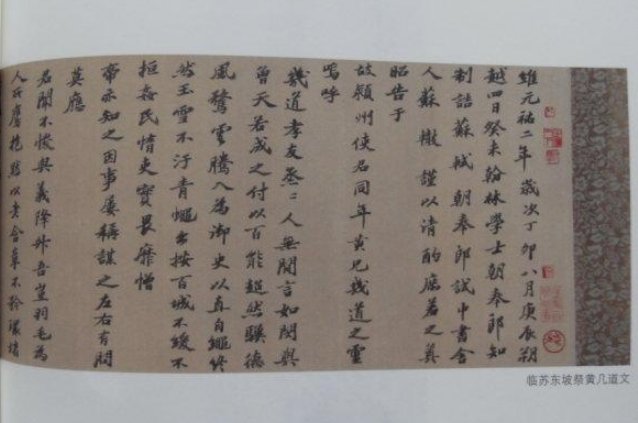 維元祐二年歲次丁卯八月庚辰朔
越四日癸未翰林學士朝奉郎知
制誥蘇軾朝奉郎試中書舍
人蘇轍謹以清酌庶羞之奠
昭告于
故潁州使君同年黃兄幾道之靈
嗚呼
幾道孝友烝=人無閒言如閔與
曾天若成之付以百能超然驥德
風騖雲騰入為御史以直自繩終
然玉雪不汙青蠅出按百城不緩不
拒姦民惰吏實畏靡憎
帝亦知之因事屢稱謀之左右有問
莫應
君聞不悛與義降升吾豈羽毛為
人所鷹抱默以老舍章不矜環堵
临苏东坡祭黄几道文